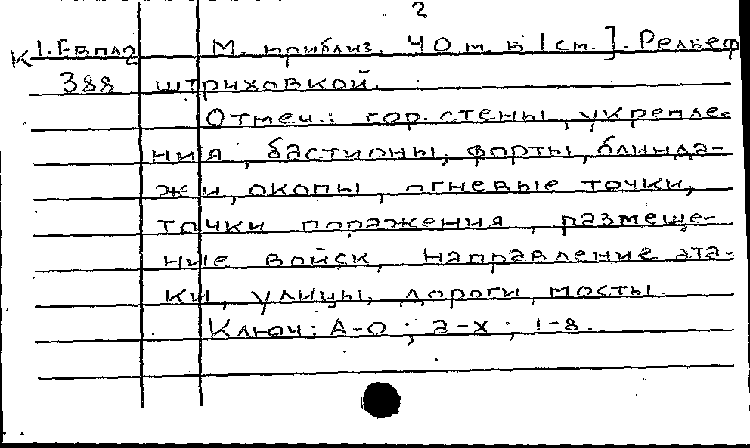 2
К 1. Евпл2 М. приблиз. 40 т. в 1 ст.]. Рельеф
388 штриховкой.
Отмеч.: гор. стены, укрепле-
ния, бастионы, форты, блинда-
жи, окопы, огневые точки,
точки поражения, размеще-
ние войск, направление ата-
ки, улицы, дороги, мосты.
Ключ: А-О; а-х; 1-8.